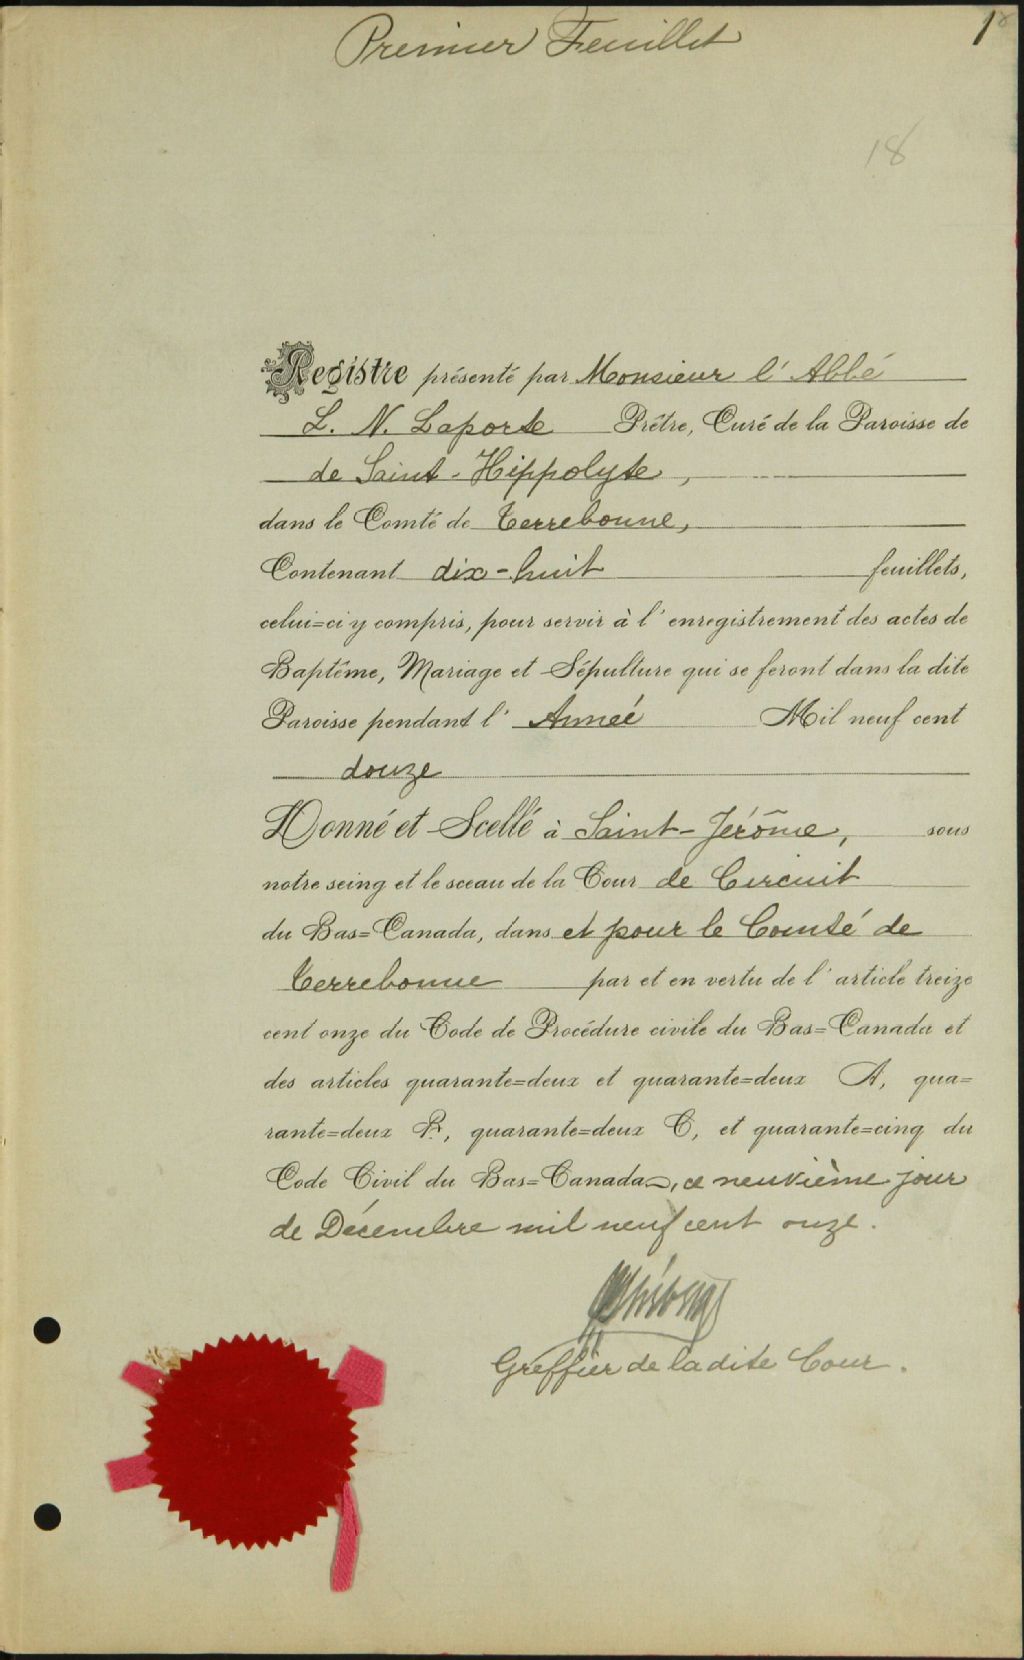 Premier Feuillet
1
18
Registre présenté par Monsieur l'Abbé
L. N. Laporte Prêtre, Curé de la Paroisse de
de Saint-Hippolyte,
dans le Comté de Terrebonne,
Contenant dix-huit feuillets,
celui=ci y compris, pour servir à l'enregistrement des actes de
Baptême, Mariage et Sépulture qui se feront dans la dite
Paroisse pendant l' Anneé Mil neuf cent
douze
Donné et Scellé à Saint-Jérôme, sous
notre seing et le sceau de la Cour de Circuit
du Bas=Canada, dans et pour le Comté de
Terrebonne par et en vertu de l'article treize
cent onze du Code de Procédure civile du Bas=Canada et
des articles quarante=deux et quarante=deux A, qua=
rante=deux B, quarante=deux C, et quarante=cinq du
Code Civil du Bas=Canada, ce neuvième jour
de Décembre mil neuf cent onze.
Greffier de ladite Cour.